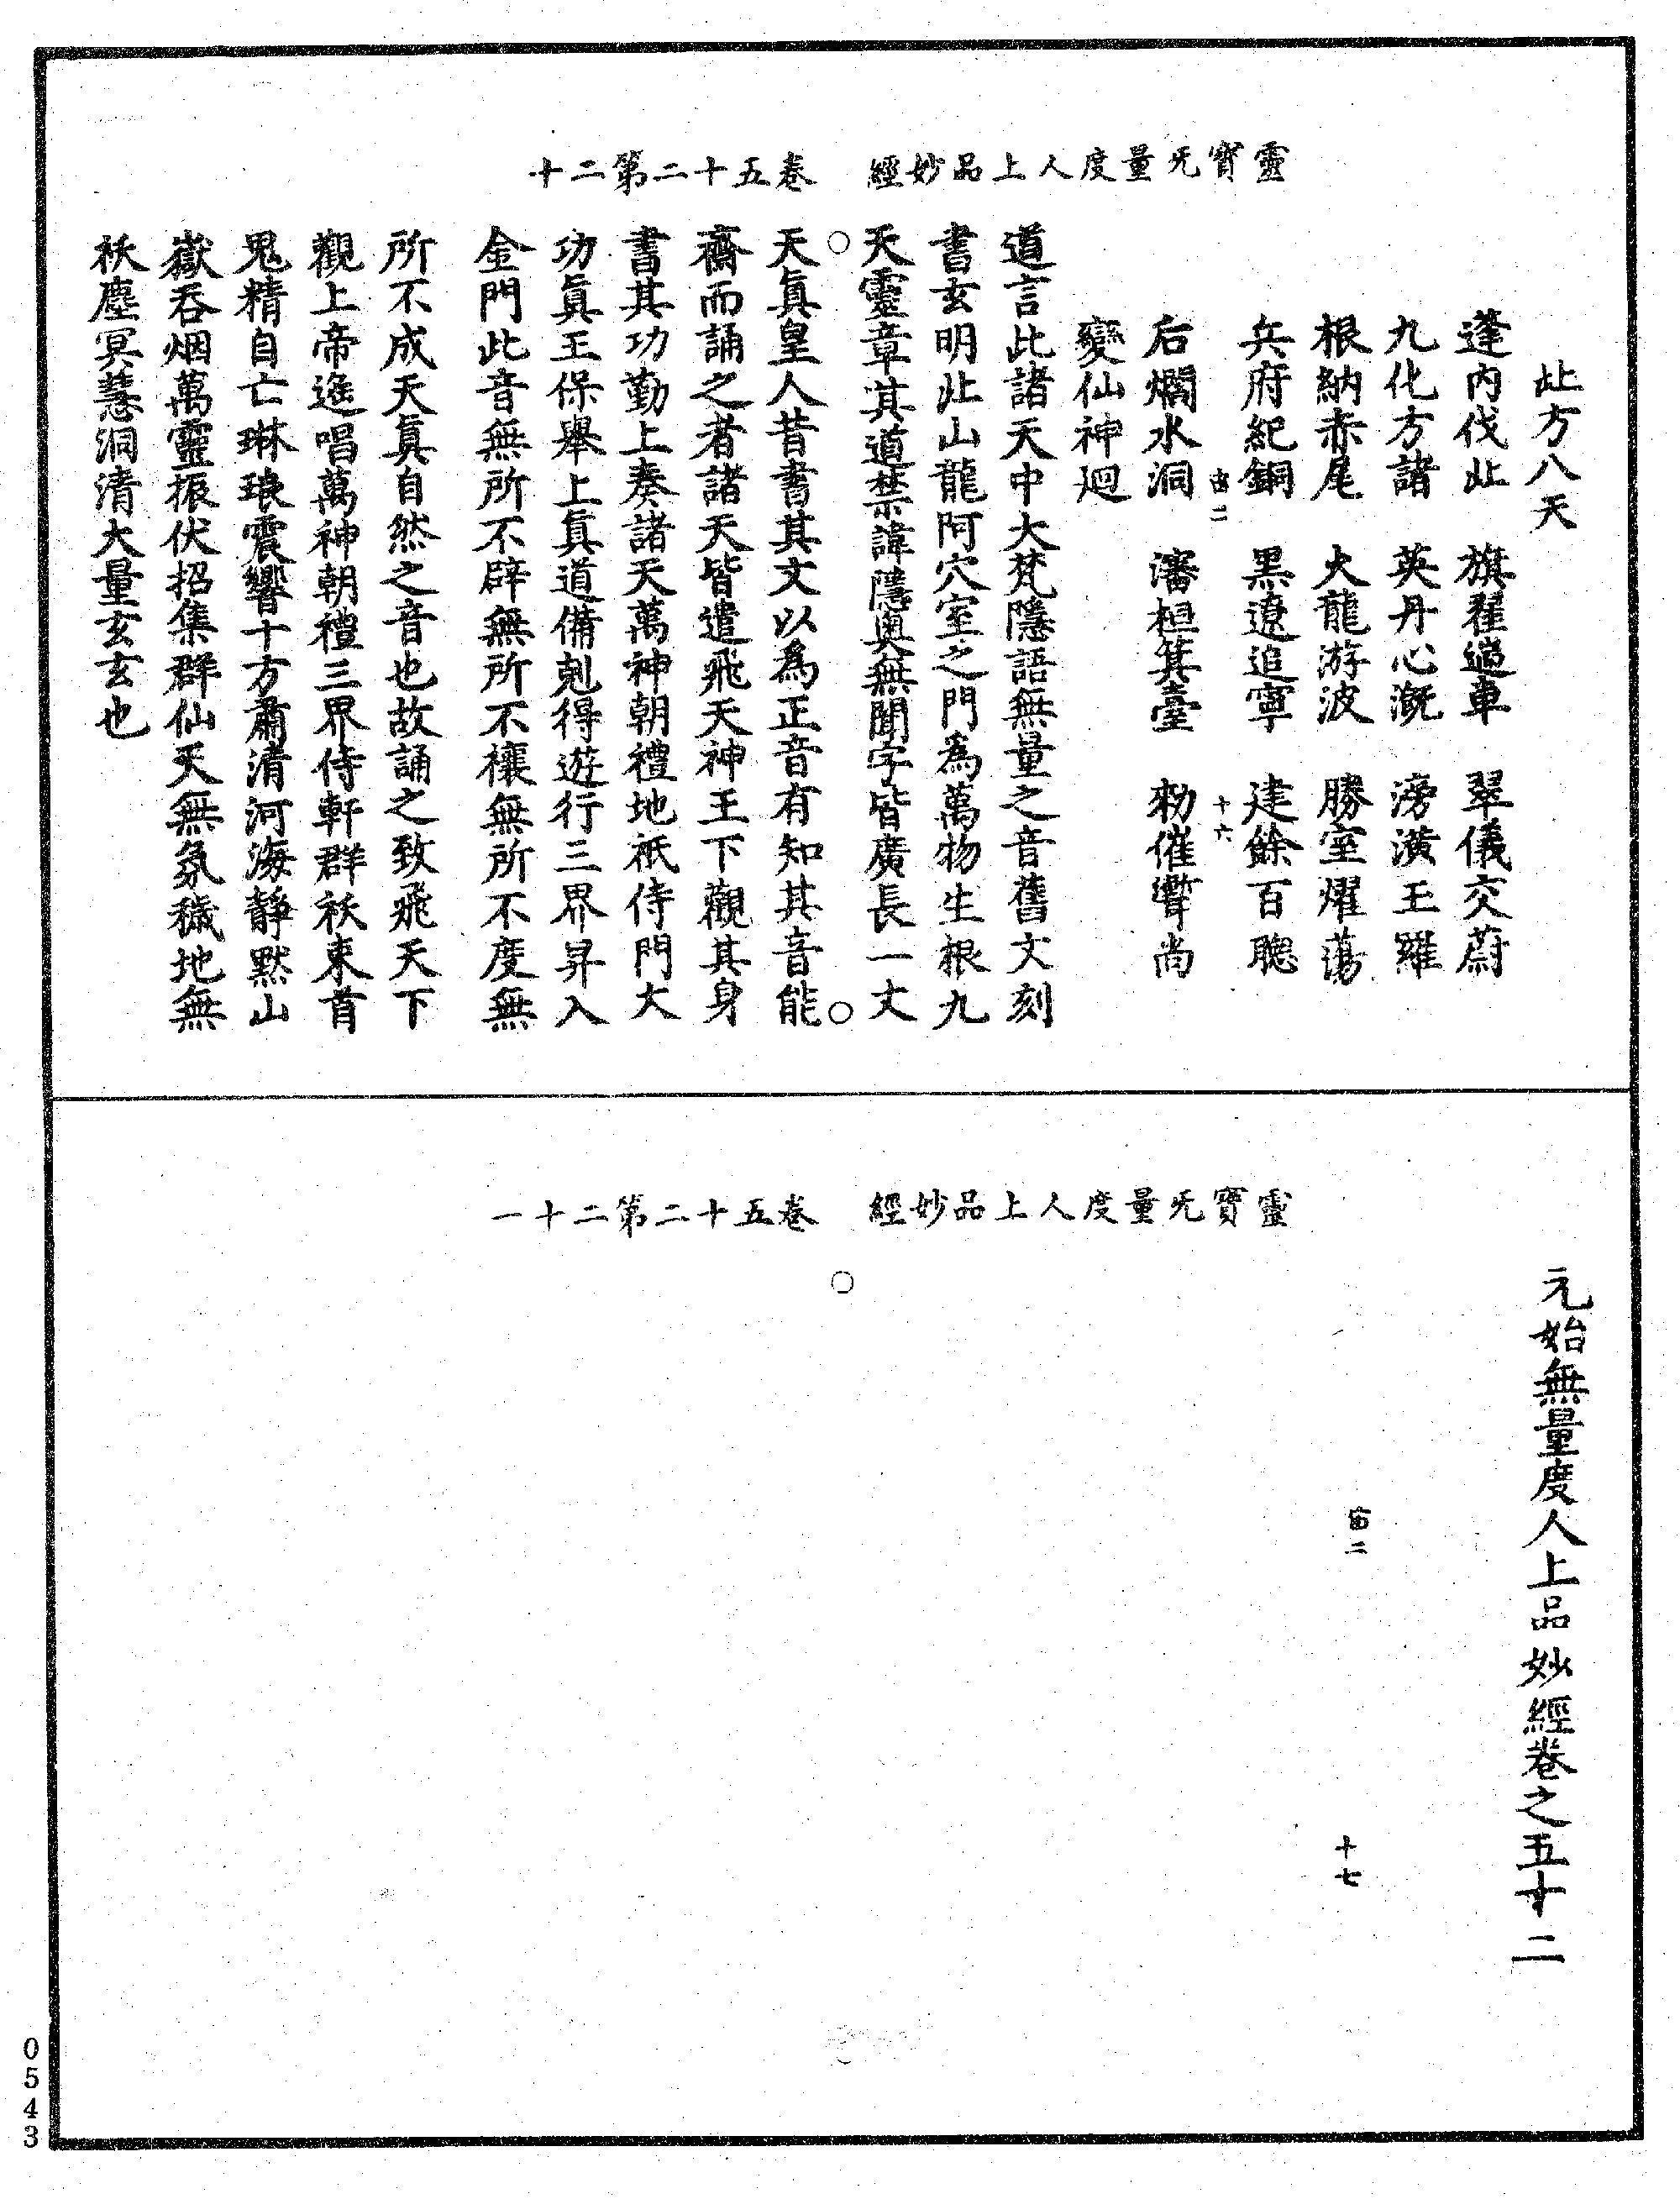 靈寶旡量度人上品妙經　卷五十二第二十
北方八天
蓬內伐北　旗翟　車　翠儀交蔚
九化方諸　英丹心漑　滂潢王羅
根納赤尾　火龍游波　勝室燿蕩
兵府紀銅　黑遼追寧　建餘百聰
宙二　十六
后爛水洞　瀋桓箕臺　勑催　尚
變仙神迴
道言此諸天中大梵隱語無量之音舊文刻
書玄明北山龍阿穴室之門爲萬物生根九
天靈章其道禁諱隱奧無聞字皆廣長一丈
天眞皇人昔書其文以爲正音有知其音能
齋而誦之者諸天皆遣飛天神王下觀其身
書其功勤上奏諸天萬神朝禮地祇侍門大
功眞王保舉上眞道備剋得遊行三界昇入
金門此音無所不辟無所不禳無所不度無
所不成天眞自然之音也故誦之致飛天下
觀上帝遙唱萬神朝禮三界侍軒群祅束首
鬼精自亡琳琅震響十方肅清河海靜默山
嶽吞烟萬靈振伏招集群仙天無氛穢地無
祅塵冥慧洞清大量玄玄也
靈寶旡量度人上品妙經　卷五十二第二十一
元始無量度人上品妙經卷之五十二
宙二　十七
0543